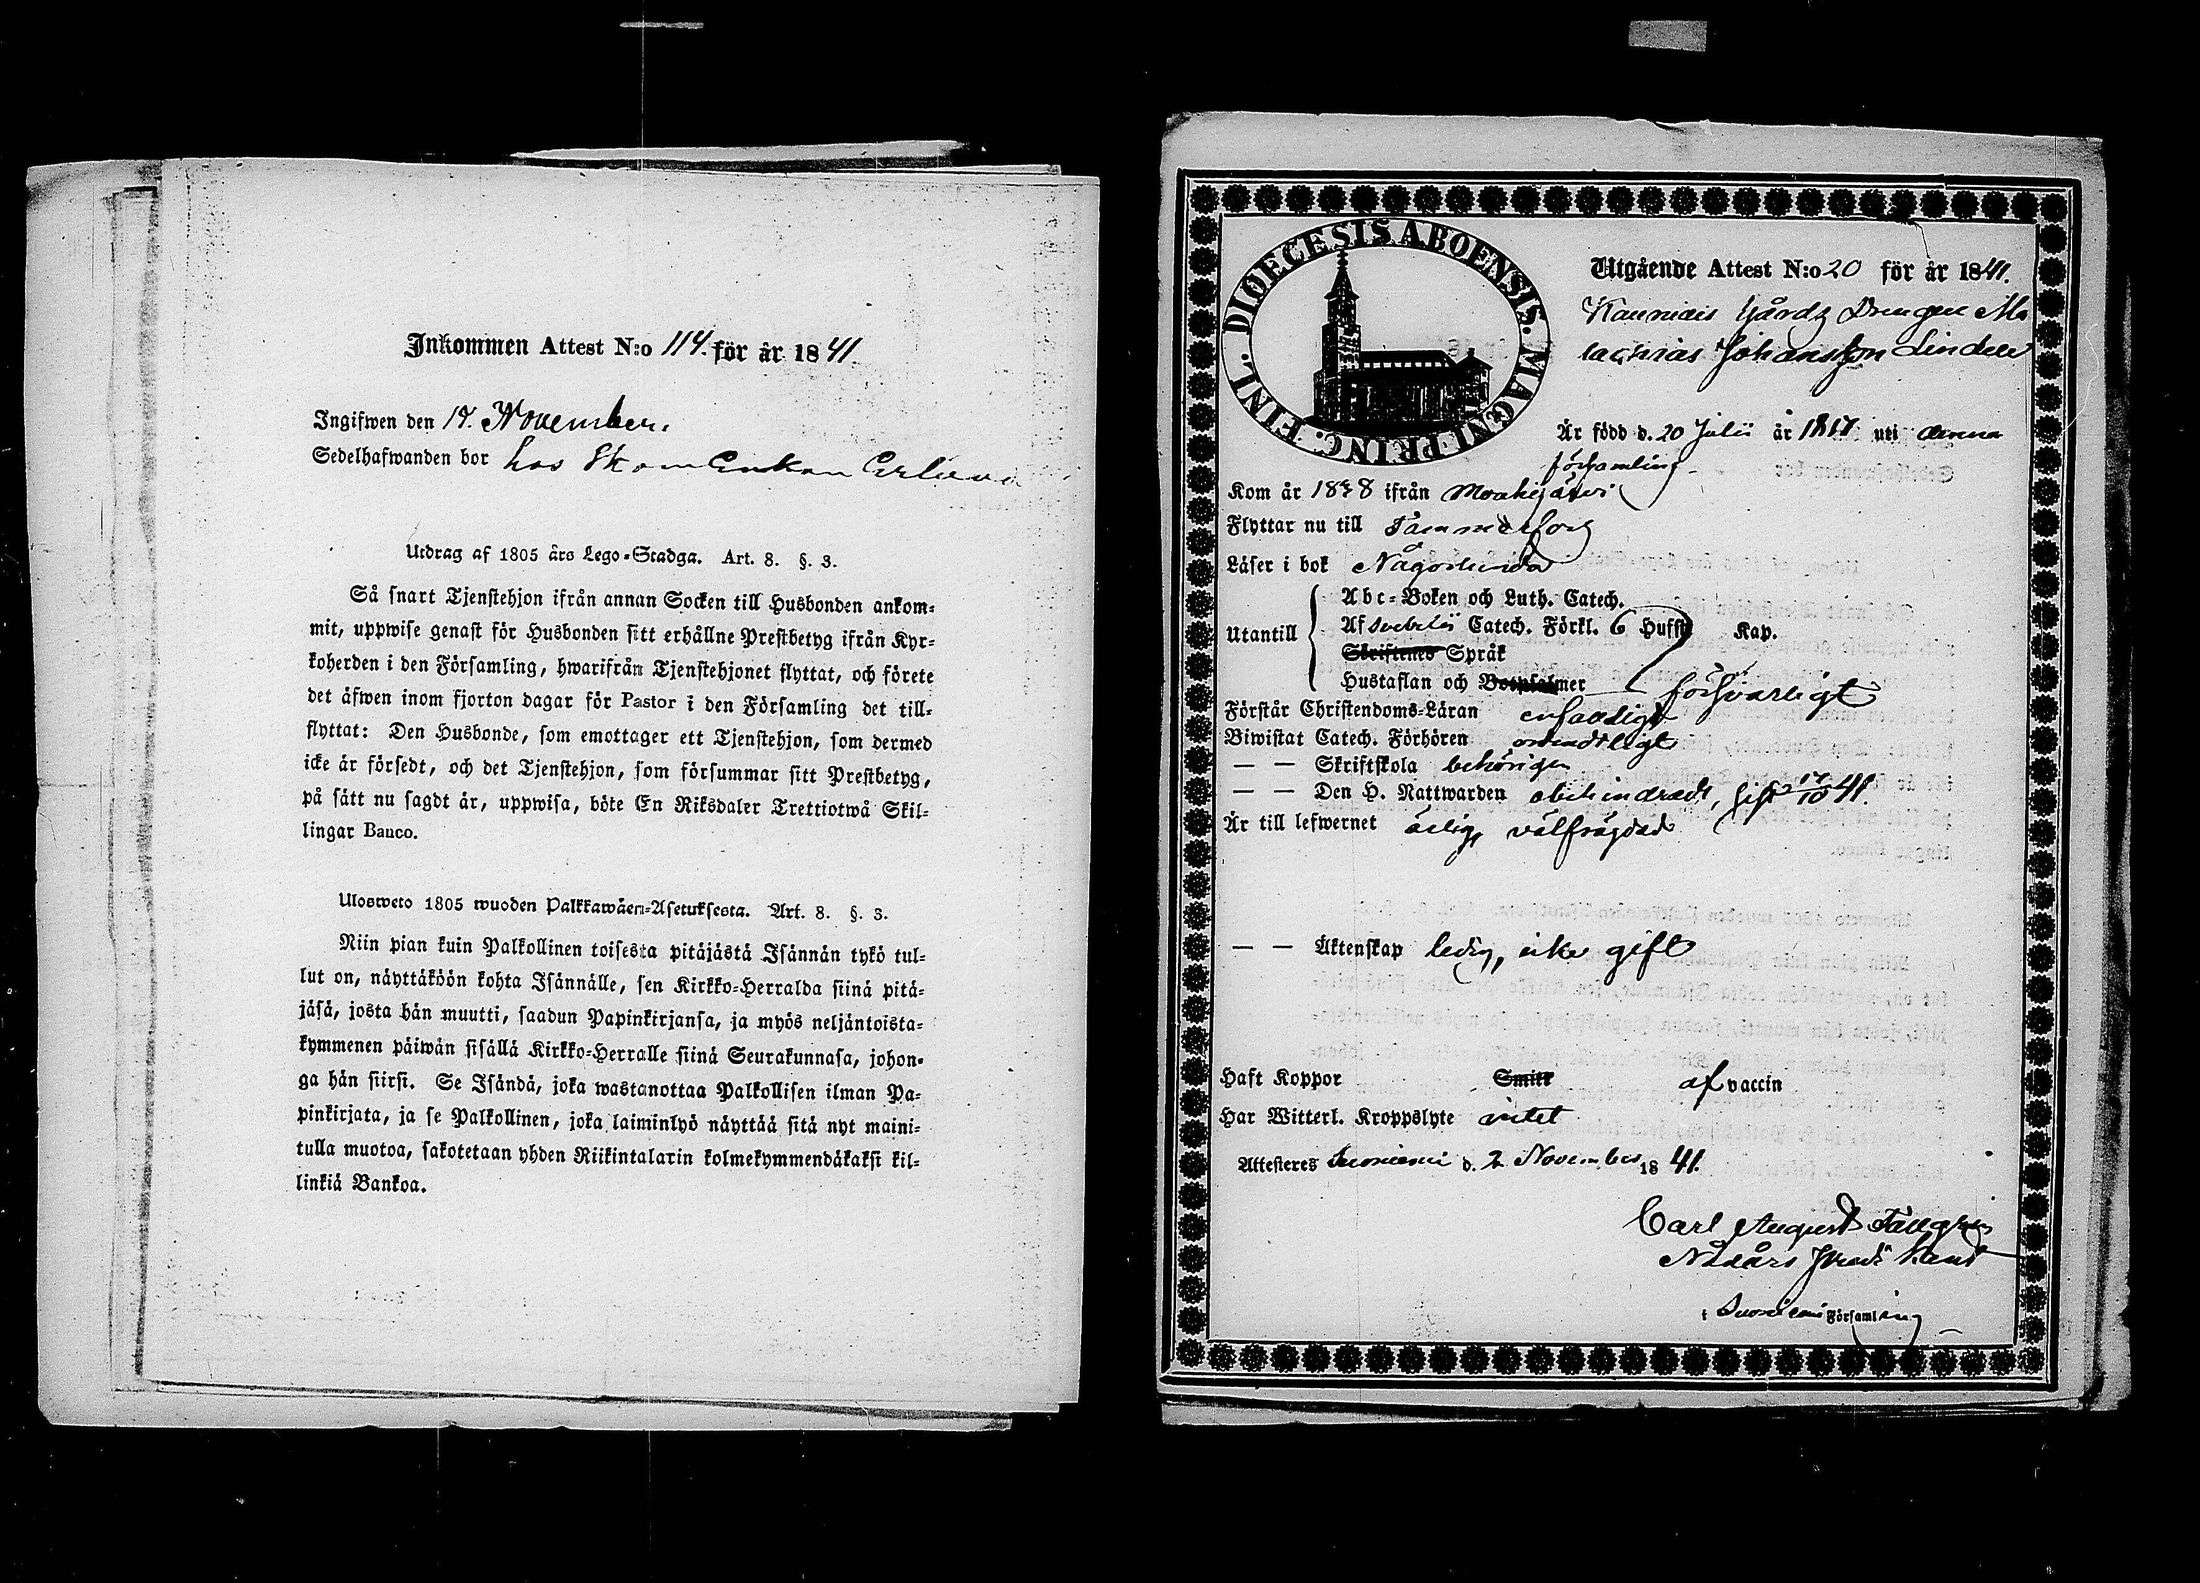 Inkommen Attest N:o 114. för år 1841.
Ingifwen den 14. November.
Sedelhafwanden bor hos Skom Enkan
Utdrag af 1805 års Lego-Stadga. Art. 8. §. 3.
Så snart Tjenstehjon ifrån annan Socken till Husbonden ankom-
mit, uppwise genast för Husbonden sitt erhållne Prestbetyg ifrån Kyr-
koherden i den Församling, hwarifrån Tjenstehjonet flyttat, och förete
det äfwen inom fjorton dagar för Pastor i den Församling det till-
flyttat: Den Husbonde, som emottager ett Tjenstehjon, som dermed
icke är försedt, och det Tjenstehjon, som försummar sitt Prestbetyg,
på sätt nu sagdt är, uppwisa, böte En Riksdaler Trettiotwå Skil-
lingar Banco.
Ulosweto 1805 wuoden Palkkawäen-Asetuksesta. Art. 8. §. 3.
Niin pian kuin Palkollinen toisesta pitäjästä Isännän tykö tul-
lut on, näyttäköön kohta Isännälle, sen Kirkko-Herralda siinä pitä-
jäsä, josta hän muutti, saadun Papinkirjansa, ja myös neljäntoista-
kymmenen päiwän sisällä Kirkko-Herralle siinä Seurakunnasa, johon-
ga hän siirsi. Se Isändä, joka wastanottaa Palkollisen ilman Pa-
pinkirjata, ja se Palkollinen, joka laiminlyö näyttää sitä nyt maini-
tulla muotoa, sakotetaan yhden Riikintalarin kolmekymmendäkaksi kil-
linkiä Bankoa.
DIOECESIS ABOENSIS. MAGNI PRINC. FINL.
Utgående Attest N:o 20 för år 1841.
Kauniais Gårdz Drengen Ma
tachrias Johansson Lindell
Är född d. 20 Julii år 1817 uti denna
församling
Kom år 1838 ifrån Mouhijärvi
Flyttar nu till Tammerfors
Läser i bok Någorlunda
Utantill
Abc-Boken och Luth. Catech.
Af Svebelii Catech. Förkl. 6 Hufst Kap.
Skriftenes Språk
Hustaflan och Botpsalmer försvarligt
Förstår Christendoms-Läran enfaldigt
Biwistat Catech. Förhören ordentligt
— — Skriftskola behörigen
— — Den H. Nattwarden obehindradt, sist 17/10 41.
Är till lefwernet ärlig, välfrägdad
— — Äktenskap ledig, icke gift
Haft Koppor Smitt af vaccin
Har Witterl. Kroppslyte intet
Attesteres Suoniemi d. 2 November 1841.
Carl August Tallgren
Nådårs Pred:
i Suoniemi Församling